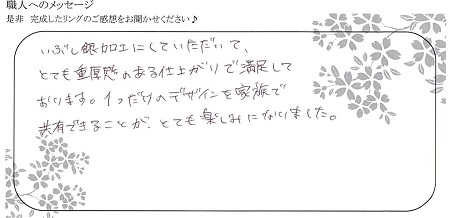 職人へのメッセージ
是非 完成したリングのご感想をお聞かせください♪
いぶし銀加工にしていただいて、
とても重厚感のある仕上がりで満足して
おります。1つだけのデザインを家族で
共有できることが、とても楽しみになりました。